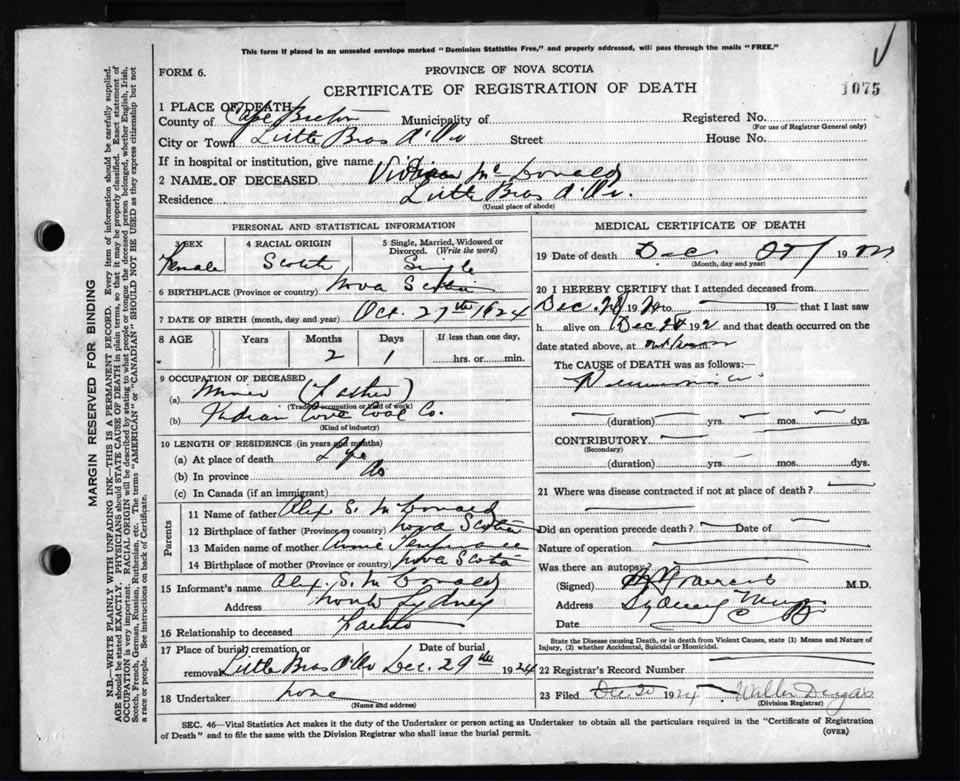 This form if placed in an unsealed envelope marked "Dominion Statistics Free," and properly addressed, will pass through the mails "FREE."
FORM 6.
PROVINCE OF NOVA SCOTIA
CERTIFICATE OF REGISTRATION OF DEATH
1075
1 PLACE OF DEATH
County of Cape Breton Municipality of Registered No.
(For use of Registrar General only)
City or Town Little Bras d'Or Street House No.
If in hospital or institution, give name
2 NAME OF DECEASED Vivian McDonald
Residence Little Bras d'Or
(Usual place of abode)
PERSONAL AND STATISTICAL INFORMATION
3 SEX 4 RACIAL ORIGIN 5 Single, Married, Widowed or Divorced. (Write the word)
Female Scotch Single
6 BIRTHPLACE (Province or country) Nova Scotia
7 DATE OF BIRTH (month, day and year) Oct. 27th 1924
8 AGE Years Months Days If less than one day,
2 1 hrs. or min.
9 OCCUPATION OF DECEASED
(a) Miner (Father)
(Trade, occupation or kind of work)
(b) Indian Cove Coal Co.
(Kind of industry)
10 LENGTH OF RESIDENCE (in years and months)
(a) At place of death Life
(b) In province do
(c) In Canada (if an immigrant)
Parents
11 Name of father Alex. S. McDonald
12 Birthplace of father (Province or country) Nova Scotia
13 Maiden name of mother Annie
14 Birthplace of mother (Province or country) Nova Scotia
15 Informant's name Alex. S. McDonald
Address North Sydney
16 Relationship to deceased Father
17 Place of burial, cremation or removal Little Bras d'Or Date of burial Dec. 29th 1924
18 Undertaker none
(Name and address)
MEDICAL CERTIFICATE OF DEATH
19 Date of death Dec 19
(Month, day and year)
20 I HEREBY CERTIFY that I attended deceased from
Dec. 19 to 19 that I last saw
h alive on Dec 192 and that death occurred on the
date stated above, at m
The CAUSE of DEATH was as follows:—
Pneumonia
(duration) yrs. mos. dys.
CONTRIBUTORY
(Secondary)
(duration) yrs. mos. dys.
21 Where was disease contracted if not at place of death?
Did an operation precede death? Date of
Nature of operation
Was there an autopsy?
(Signed) M.D.
Address Sydney Mines
Date
State the Disease causing Death, or in death from Violent Causes, state (1) Means and Nature of Injury, (2) whether Accidental, Suicidal or Homicidal.
22 Registrar's Record Number
23 Filed Dec 30 1924
(Division Registrar)
SEC. 46—Vital Statistics Act makes it the duty of the Undertaker or person acting as Undertaker to obtain all the particulars required in the "Certificate of Registration
of Death" and to file the same with the Division Registrar who shall issue the burial permit.
(OVER)
MARGIN RESERVED FOR BINDING
N.B.—WRITE PLAINLY WITH UNFADING INK—THIS IS A PERMANENT RECORD. Every item of information should be carefully supplied.
AGE should be stated EXACTLY. PHYSICIANS should STATE CAUSE OF DEATH in plain terms, so that it may be properly classified. Exact statement of
OCCUPATION is very important. RACIAL ORIGIN will be described by stating to what people or tongue the deceased person belonged, whether English, Irish,
Scotch, French, German, Russian, Ruthenian, etc. The terms "AMERICAN" or "CANADIAN" SHOULD NOT BE USED as they express citizenship but not
a race or people. See instructions on back of Certificate.